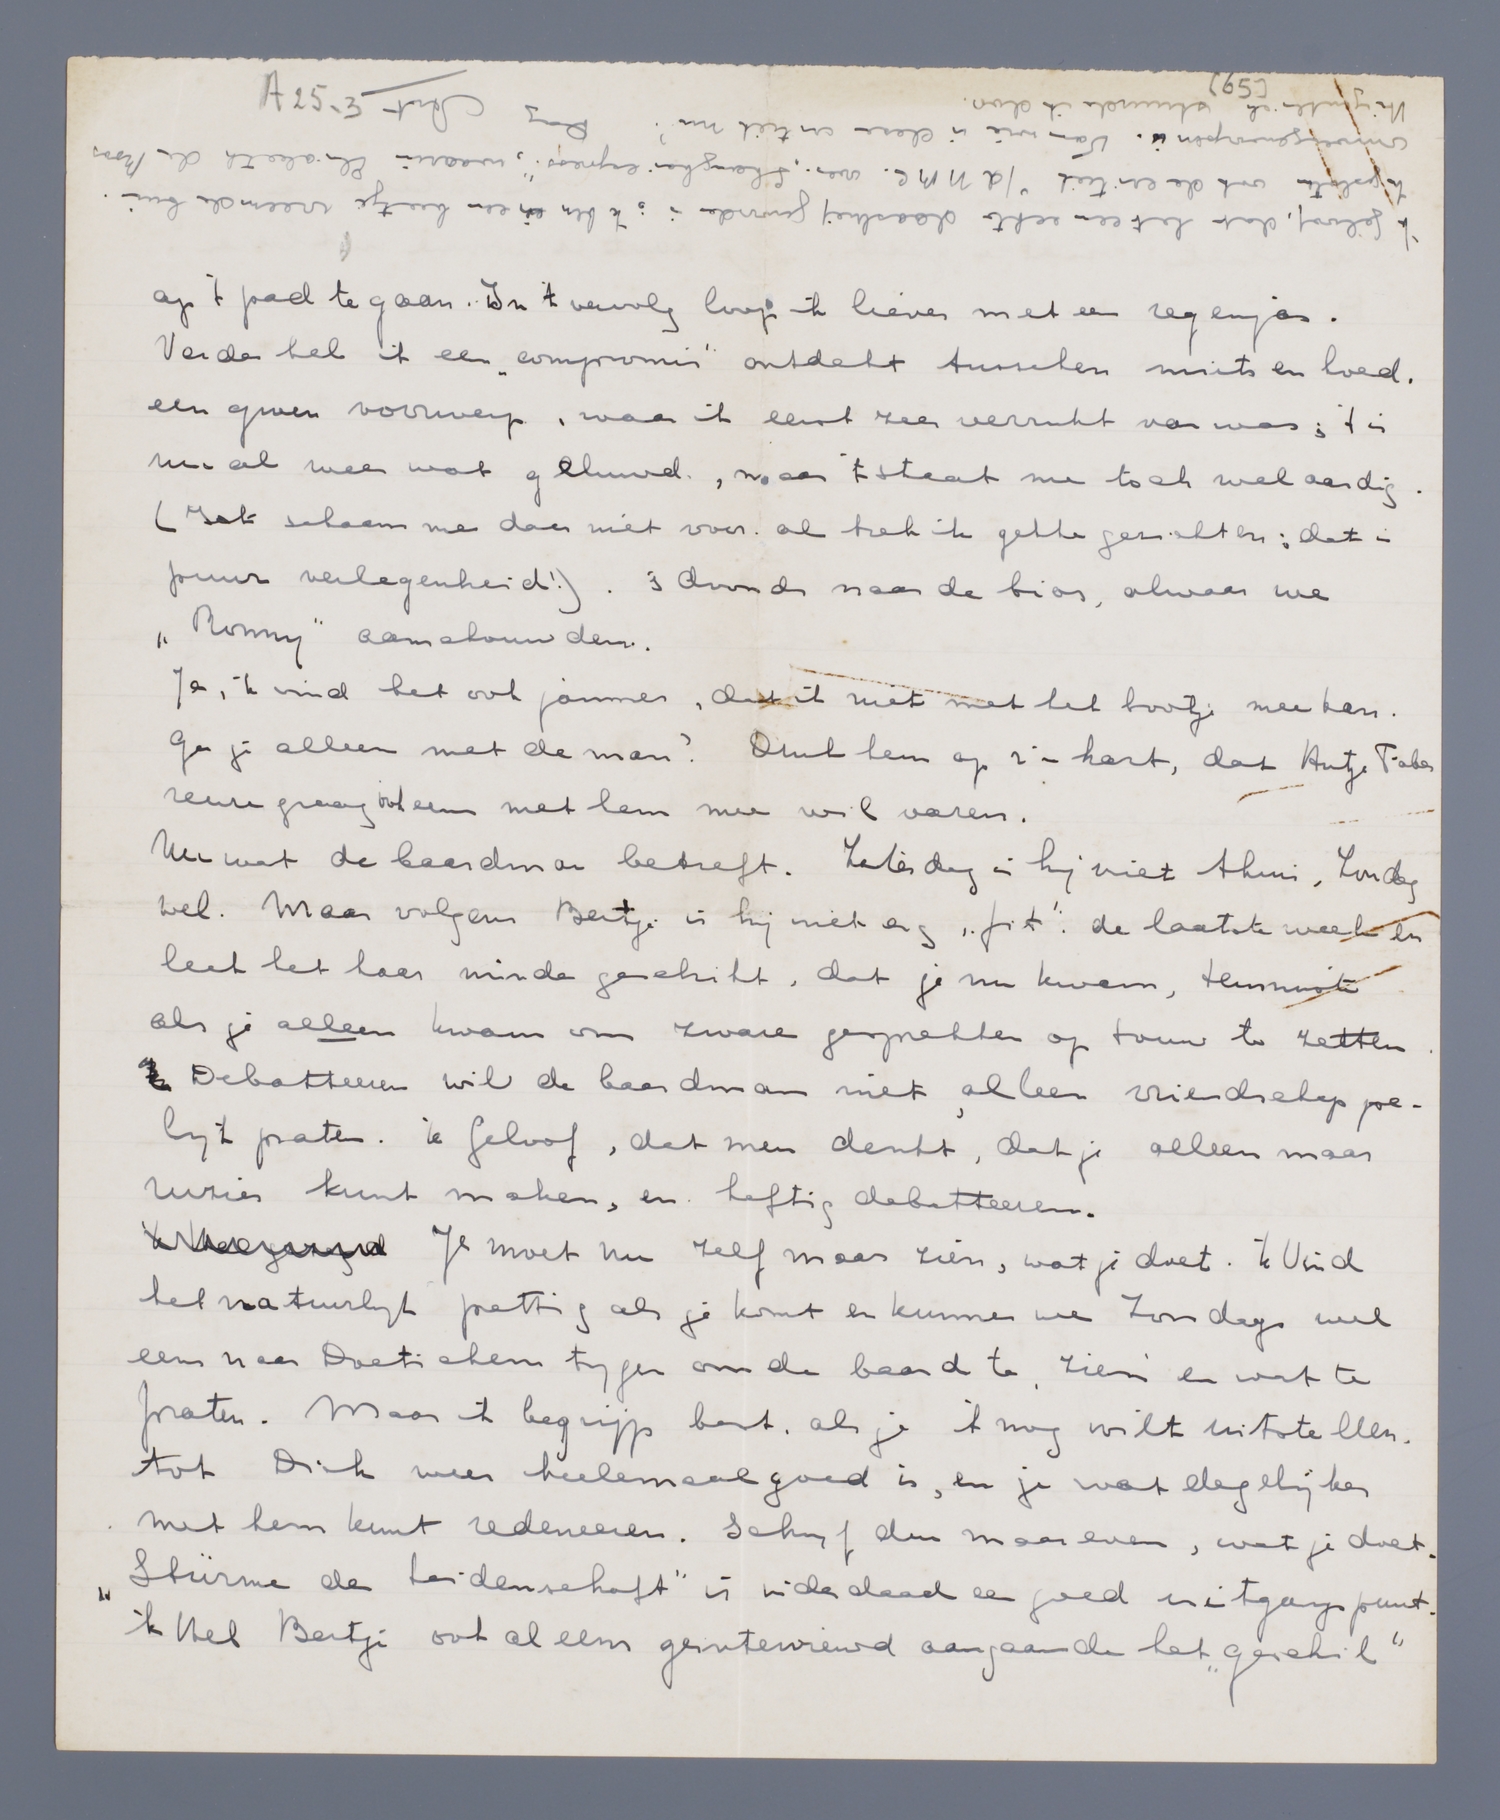 A 25-3
(65)
'k Geloof, dat het een echte klaaglijf geworden is; 'k ben in een beetje vreemde bui.
ook de critiek v/d N.R.C. over "Shanghai express", waarin Elisabeth de Roos
. Van wie is deze critiek nu? Dag
stuurde ik door.
op 't pad te gaan. In 't vervolg loop ik liever met een regenjas.
Verder heb ik een „compromis" ontdekt tusschen muts en hoed.
een groen voorwerp, waar ik eerst zeer verrukt van was; 't is
nu al weer wat geluwd, maar 't staat me toch wel aardig.
( Ik schaam me daar niet voor. al trek ik gekke gezichten; dat is
puur verlegenheid!). 's Avonds naar de bios, alwaar we
„Ronny" aanschouwden.
Ja, 'k vind het ook jammer, dat ik niet met het bootje mee kan.
Ga je alleen met de man? Druk hem op z'n hart, dat Antje Faber
reuze graag ook eens met hem mee wil varen.
Nu wat de baardman betreft. Zaterdag is hij niet thuis, Zondag
wel. Maar volgens Bertje is hij niet erg „fit". de laatste week en
leek het haar minder geschikt, dat je nu kwam, tenminste
als je alleen kwam om zware gesprekken op touw te zetten.
Debatteeren wil de baardman niet, alleen vriendschappe-
lijk praten. 'k Geloof, dat men denkt, dat je alleen maar
ruzies kunt maken, en heftig debatteeren.
Je moet nu zelf maar zien, wat je doet. 'k Vind
het natuurlijk prettig als je komt en kunnen we Zondags wel
eens naar Doetichem tijgen om de baard te zien en wat te
praten. Maar ik begrijp best, als je 't nog wilt uitstellen.
tot Dick weer heelemaal goed is, en je wat degelijker
met hem kunt redeneeren. Schrijf dus maar even, wat je doet.
„Stürme der Leidenschaft" is inderdaad een goed uitgangspunt.
'k Heb Bertje ook al eens geinterviewd aangaande het „geschil"